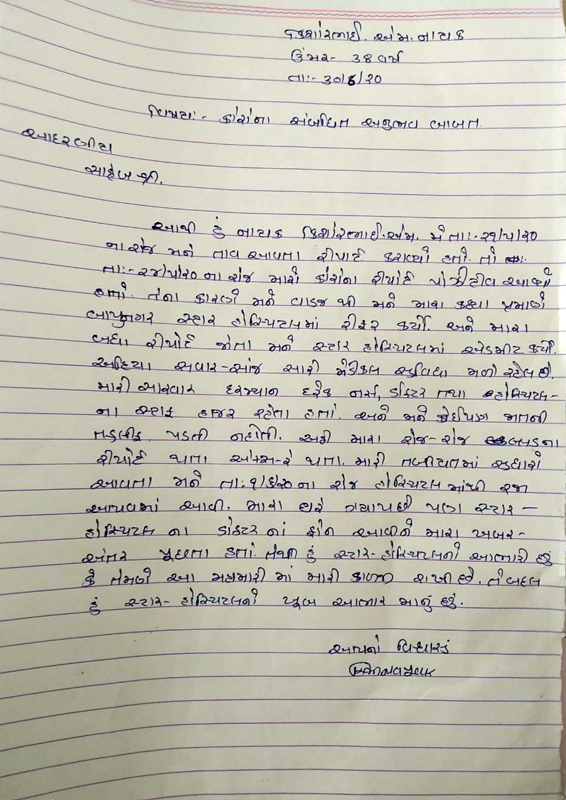 કિશોરભાઈ. એમ. નાયક
ઉંમર- ૩૪ વર્ષ
તા:- ૩૦/૬/૨૦
વિષય:- કોરોના સંબંધિત અનુભવ બાબત
આદરણીય
સાહેબ શ્રી.
આથી હું નાયક કિશોરભાઈ.એમ. મેં તા:- ૨૧/૫/૨૦
ના રોજ મને તાવ આવતા રીપોર્ટ કરાવ્યો હતો. તો
તા:- ૨૪/૫/૨૦ ના રોજ મારો કોરોના રીપોર્ટ પોઝીટીવ આવ્યો
હતો. તેના કારણે મને વાડજ થી મને મારા કહ્યા પ્રમાણે
બાપુનગર સ્ટાર હોસ્પિટલમાં રીફર કર્યો. અને મારા
બધા રીપોર્ટ જોતા મને સ્ટાર હોસ્પિટલમાં એડમીટ કર્યો.
અહિયા સવાર-સાંજ સારી મેડિકલ સુવિધા મળી રહેલ છે.
મારી સારવાર દરમ્યાન દરેક નર્સ, ડોક્ટર તથા હોસ્પિટલ-
ના સ્ટાફ હાજર રહેતા હતાં. અને મને કોઈપણ જાતની
તકલીફ પડતી નહોતી. અહી મારા રોજ-રોજ બ્લડના
રીપોર્ટ થતા એક્સ-રે થતા. મારી તબીયતમાં સુધારો
આવતા મને તા:૧/૬/૨૦ ના રોજ હોસ્પિટલ માંથી રજા
આપવામાં આવી. મારા ઘરે ગયા પછી પણ સ્ટાર-
હોસ્પિટલ ના ડોક્ટર નાં ફોન આવીને મારા ખબર-
અંતર પૂછતા હતાં તેથી હું સ્ટાર-હોસ્પિટલનો આભારી છું
કે તેમણે આ મહામારી માં મારી કાળજી રાખી છે. તે બદલ
હું સ્ટાર-હોસ્પિટલનો ખૂબ આભાર માનું છું.
આપનો વિશ્વાસુ